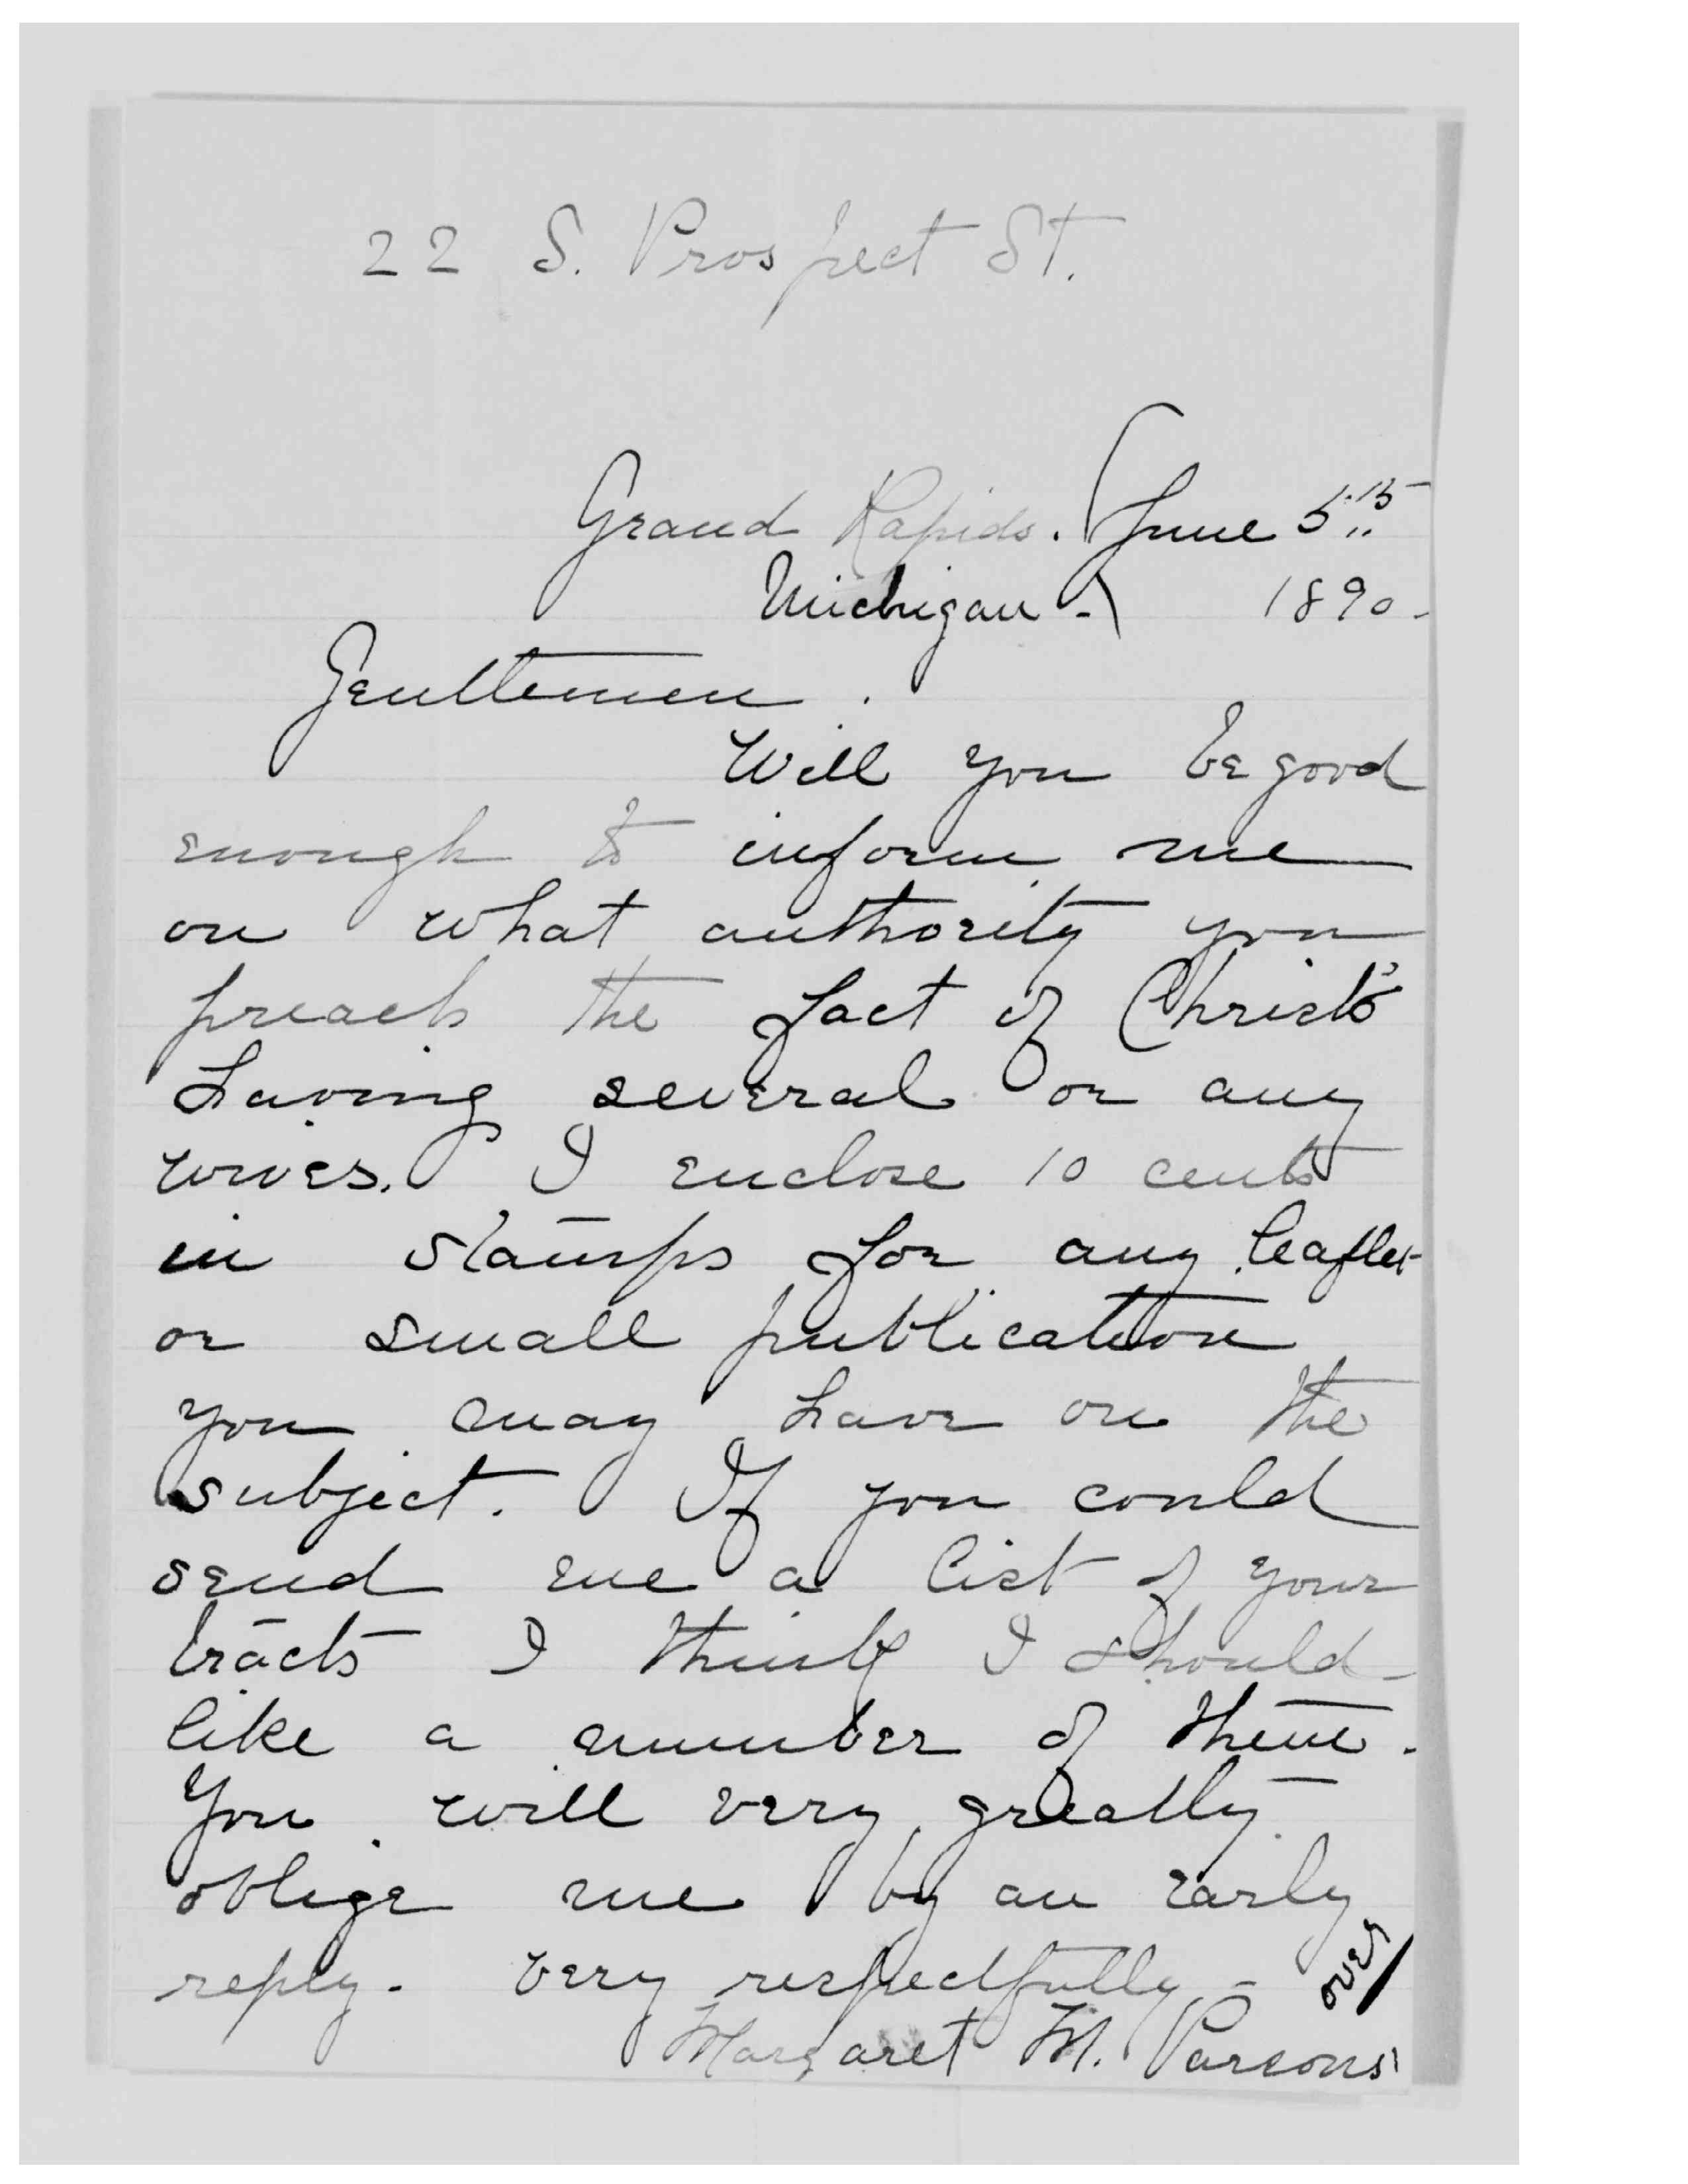 22 S. Prospect St.
Grand Rapids. June 5th
Michigan - 1890-
Gentlemen.
Will you be good
enough to inform me
on what authority you
preach the fact of Christ's
having several or any
wives. I enclose 10 cents
in stamps for any leaflet
or small publication
you may have on the
subject. If you could
send me a list of your
tracts I think I should
like a number of them.
You will very greatly
oblige me by an early
reply. Very respectfully -
over
Margaret M. Parsons